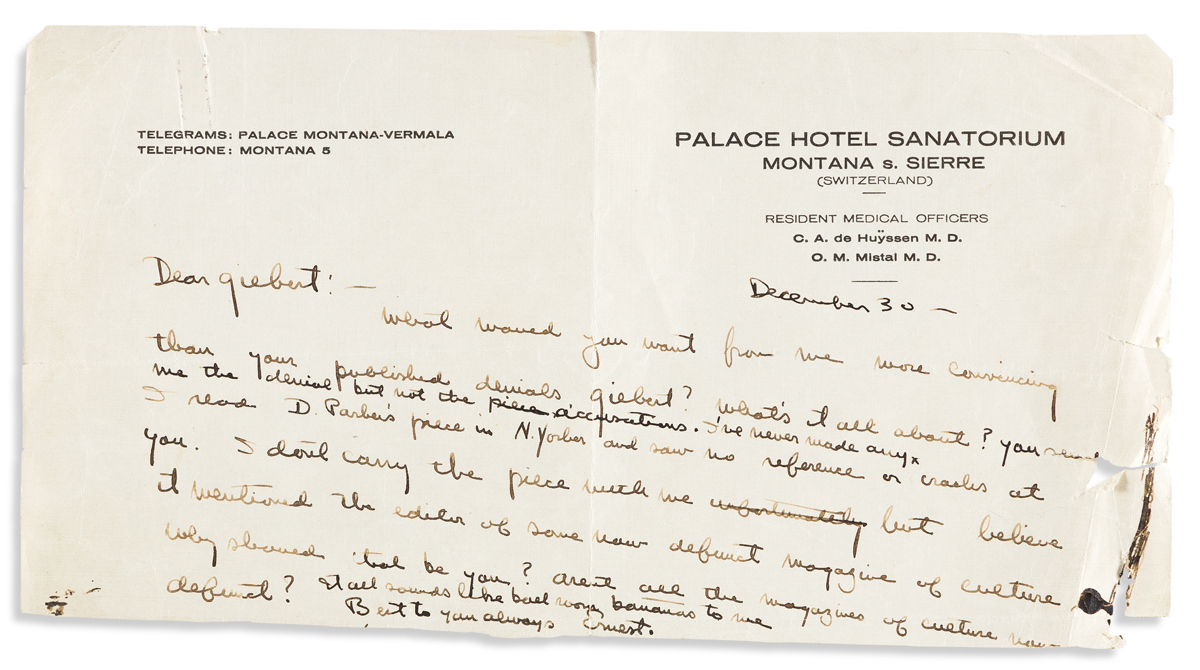 TELEGRAMS: PALACE MONTANA-VERMALA
TELEPHONE: MONTANA 5
PALACE HOTEL SANATORIUM
MONTANA s. SIERRE
(SWITZERLAND)
RESIDENT MEDICAL OFFICERS
C. A. de Huÿssen M. D.
O. M. Mistal M. D.
December 30 —
Dear Giebert: —
What would you want from me more convincing
than your published denials Giebert? What's it all about? You send
me the denial but not the piece accusations. I've never made any x
I read D. Parker's piece in N. Yorker and saw no reference or cracks at
you. I don't carry the piece with me unfortunately but believe
it mentioned the editor of some now defunct magazine of culture
Why should that be you? Arent all the magazines of culture now
defunct? It all sounds like bad bananas to me
Best to you always Ernest.